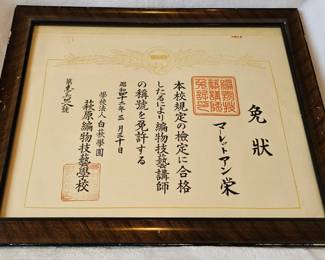 免狀
マーレットアン栄
本校規定の檢定に合格
したるにより編物技藝講師
の稱號を免許する
昭和四十三年三月三十日
學校法人白萩學園
萩原編物技藝學校
編物技
藝講師